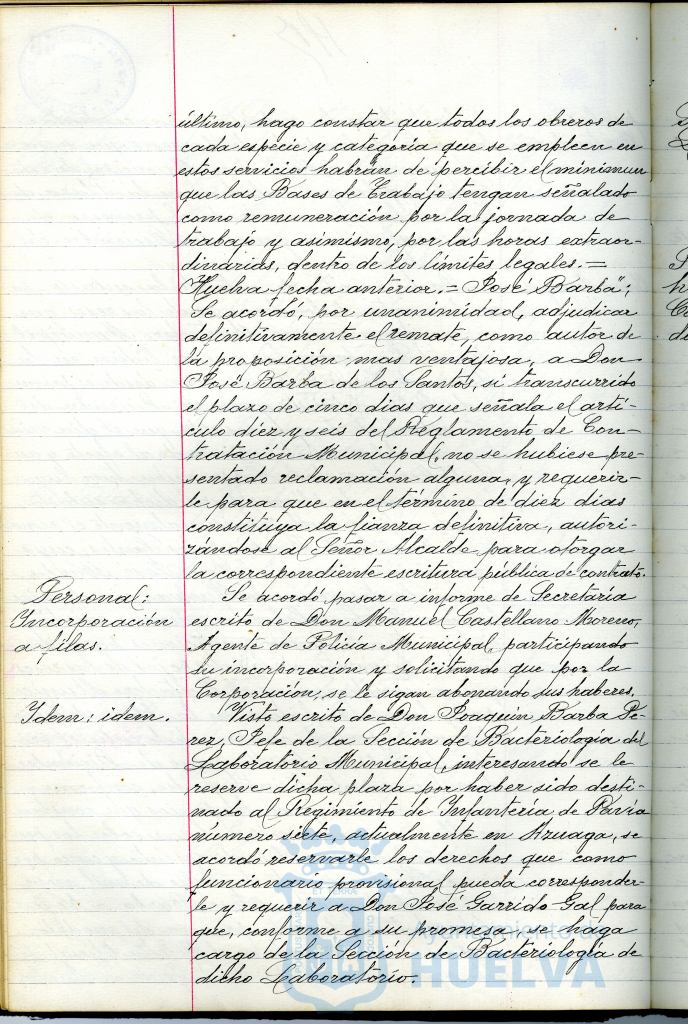 último, hago constar que todos los obreros de
cada especie y categoría que se empleen en
estos servicios habrán de percibir el minimun
que las Bases de Trabajo tengan señalado
como remuneración por la jornada de
trabajo y asimismo, por las horas extraor-
dinarias, dentro de los límites legales. =
Huelva fecha anterior. = José Barba";
Se acordó, por unanimidad, adjudicar
definitivamente el remate, como autor de
la proposición mas ventajosa, a Don
José Barba de los Santos, si transcurrido
el plazo de cinco dias que señala el artí-
culo diez y seis del Reglamento de Con-
tratación Municipal, no se hubiese pre-
sentado reclamación alguna, y requerir-
le para que en el término de diez dias
constituya la fianza definitiva, autori-
zándose al Señor Alcalde para otorgar
la correspondiente escritura pública de contrato.
Personal:
Yncorporación
a filas.
Se acordó pasar a informe de Secretaría
escrito de Don Manuel Castellano Moreno,
Agente de Policía Municipal, participando
su incorporación y solicitando que por la
Corporación, se le sigan abonando sus haberes.
Ydem: idem.
Visto escrito de Don Joaquin Barba Pé-
rez, Jefe de la Sección de Bacteriología del
Laboratorio Municipal, interesando se le
reserve dicha plaza por haber sido desti-
nado al Regimiento de Ynfantería de Pavía
número siete, actualmente en Azuaga, se
acordó reservarle los derechos que como
funcionario provisional pueda corresponder-
le y requerir a Don José Garrido Gal para
que, conforme a su promesa, se haga
cargo de la Sección de Bacteriología de
dicho Laboratorio.
HUELVA